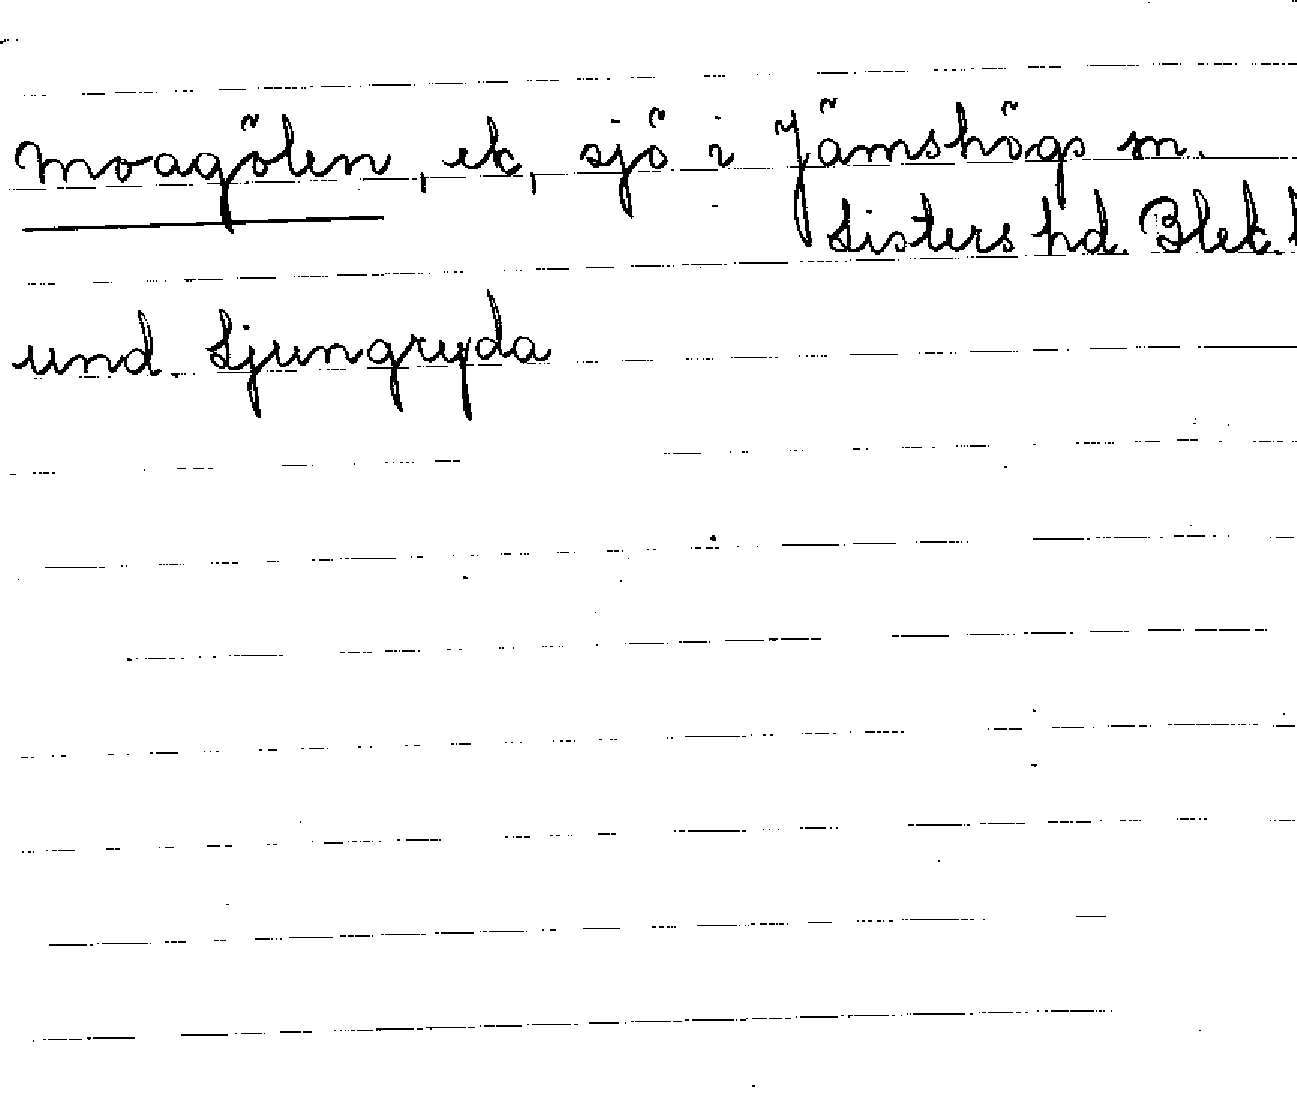 Moagölen, ek, sjö i Jämshögs sn.
Listers hd. Blek. l
und. Ljungryda